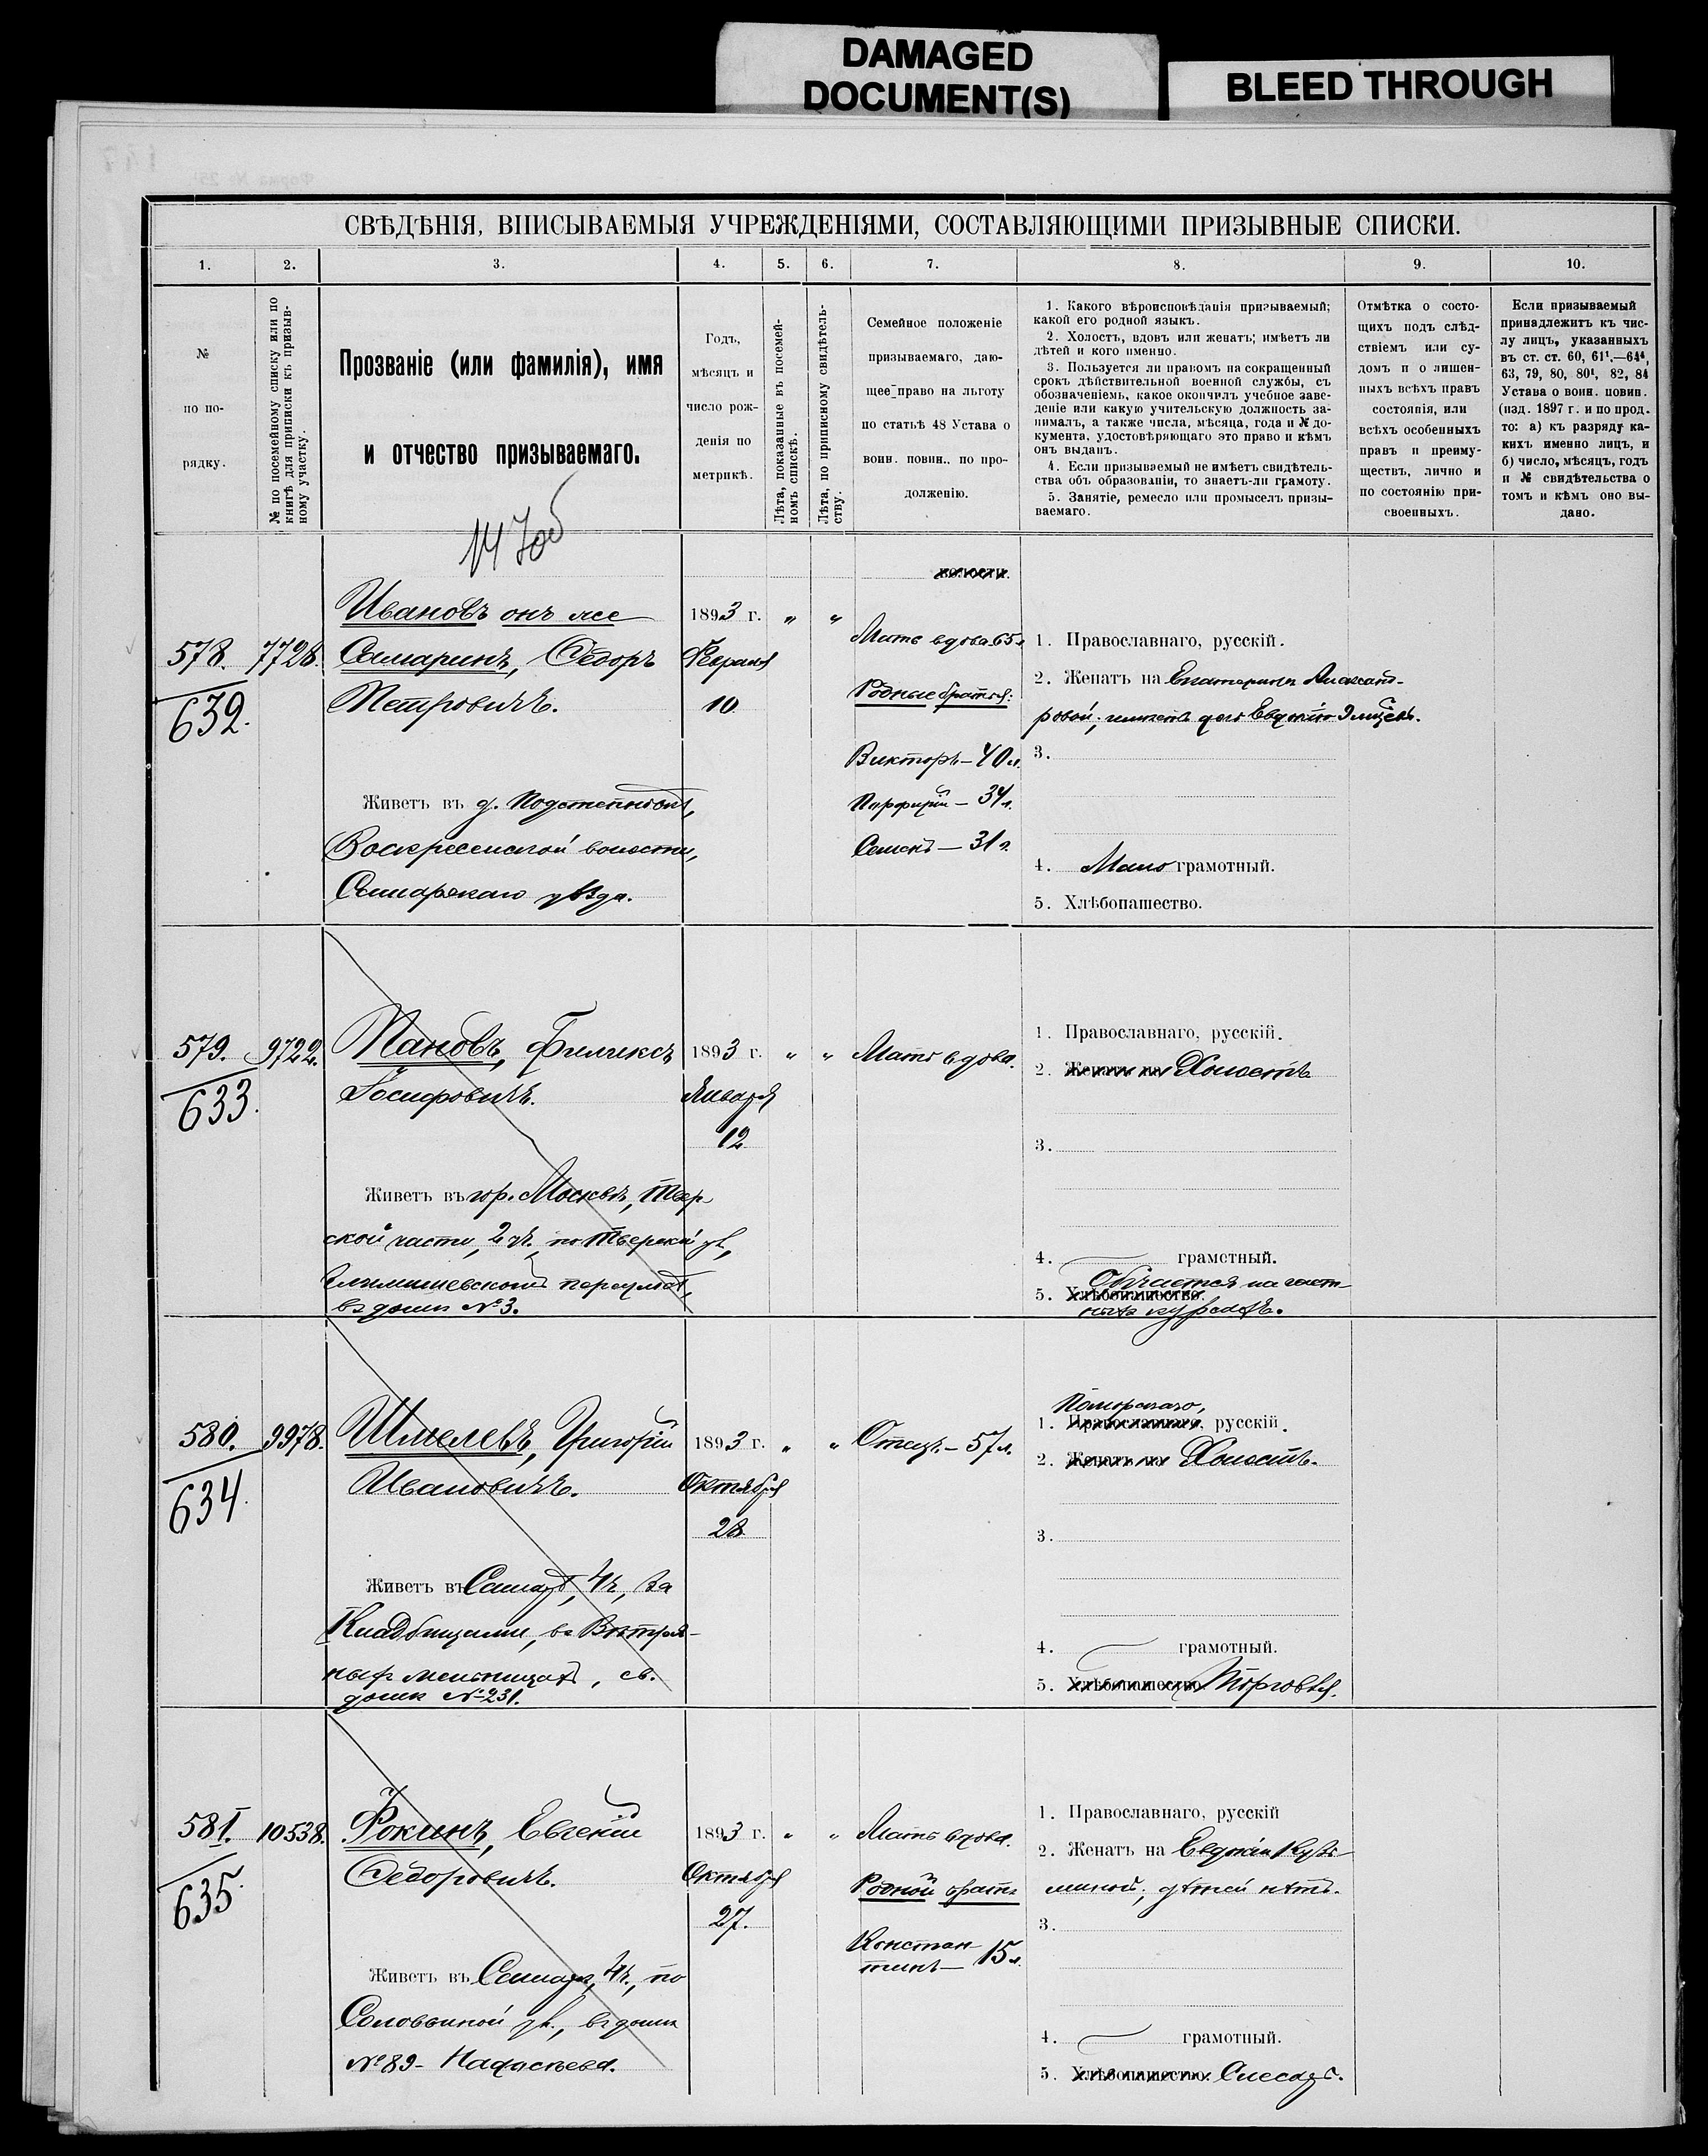 DAMAGED
DOCUMENT(S)
BLEED THROUGH
СВѢДѢНІЯ, ВПИСЫВАЕМЫЯ УЧРЕЖДЕНІЯМИ, СОСТАВЛЯЮЩИМИ ПРИЗЫВНЫЕ СПИСКИ.
1. 2. 3. 4. 5. 6. 7. 8. 9. 10.
№
по по-
рядку.
№ по посемейному списку или по
книгѣ для приписки къ призыв-
ному участку.
Прозваніе (или фамилія), имя
и отчество призываемаго.
Годъ,
мѣсяцъ и
число рож-
денія по
метрикѣ.
Лѣта, показанные въ посемей-
номъ спискѣ.
Лѣта, по приписному свидѣтель-
ству.
Семейное положеніе
призываемаго, даю-
щее право на льготу
по статьѣ 48 Устава о
воин. повин., по про-
долженію.
1. Какого вѣроисповѣданія призываемый;
какой его родной языкъ.
2. Холостъ, вдовъ или женатъ; имѣетъ ли
дѣтей и кого именно.
3. Пользуется ли правомъ на сокращенный
срокъ дѣйствительной военной службы, съ
обозначеніемъ, какое окончилъ учебное заве-
деніе или какую учительскую должность за-
нималъ, а также числа, мѣсяца, года и № до-
кумента, удостовѣряющаго это право и кѣмъ
онъ выданъ.
4. Если призываемый не имѣетъ свидѣтель-
ства объ образованіи, то знаетъ-ли грамоту.
5. Занятіе, ремесло или промыселъ призы-
ваемаго.
Отмѣтка о состо-
ящихъ подъ слѣд-
ствіемъ или су-
домъ и о лишен-
ныхъ всѣхъ правъ
состоянія, или
всѣхъ особенныхъ
правъ и преиму-
ществъ, лично и
по состоянію при-
своенныхъ.
Если призываемый
принадлежитъ къ чис-
лу лицъ, указанныхъ
въ ст. ст. 60, 61¹,—64⁴,
63, 79, 80, 80¹, 82, 84
Устава о воин. повин.
(изд. 1897 г. и по прод.
то: а) къ разряду ка-
кихъ именно лицъ, и
б) число, мѣсяцъ, годъ
и № свидѣтельства о
томъ и кѣмъ оно вы-
дано.
волости.
578. 7728.
632.
Ивановъ онъ же
Самаринъ, Ѳедоръ
Петровичъ.
Живетъ въ д. Подстепновкѣ,
Воскресенской волости,
Самарскаго уѣзда.
1893 г. " "
Февраля
10
Мать вдова 65 л
Родные братья:
Викторъ — 40 л.
Порфирій — 34 л.
Семенъ — 31 г.
1. Православнаго, русскій.
2. Женатъ на Екатеринѣ Александ-
ровой; имѣетъ дочь Евдокію
3.
4. Мало грамотный.
5. Хлѣбопашество.
579. 9722.
633.
Пановъ, Филиксъ
Іосифовичъ.
Живетъ въ гор. Москвѣ, Твер-
ской части, 2 уч. по Тверской ул,
переулокъ,
въ домѣ № 3.
1893 г. " "
Января
12
Мать вдова.
1. Православнаго, русскій.
2. Женатъ на Холостъ
3.
4. грамотный.
5. Хлѣбопашество. Обучается на част-
ныхъ курсахъ.
580. 9978.
634.
Шмелевъ, Григорій
Ивановичъ.
Живетъ въ Самарѣ, 4 ч, за
Кладбищами, въ Вѣтря-
ныхъ мельницахъ, св.
домѣ № 231.
1893 г. " "
Октября
28
Отецъ — 57 л.
Поморскаго,
1. Православнаго, русскій.
2. Женатъ на Холостъ.
3.
4. грамотный.
5. Хлѣбопашество. Торговля.
581. 10538.
635.
Фокинъ, Евгеній
Ѳедоровичъ.
Живетъ въ Самарѣ, 4 ч., по
Соловьиной ул., въ домѣ
№ 89 -
1893 г. " "
Октября
27.
Мать вдова.
Родной братъ
Констан-
тинъ — 15 л.
1. Православнаго, русскій
2. Женатъ на Евдокіи Кузь-
миной; дѣтей нѣтъ.
3.
4. грамотный.
5. Хлѣбопашество. Слесарь.